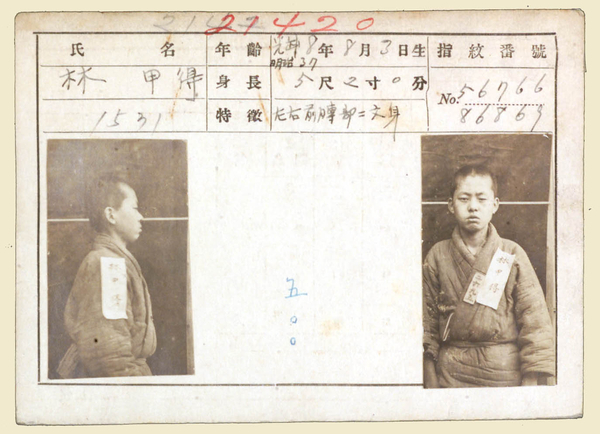 21420
氏名 年齡 光緒8年8月3日生 指紋番號
明治37
林甲得 身長 5尺2寸0分 No. 56766
1531 特徵 左右前膊部ニ文身 86869
林甲得
林甲得
五〇〇